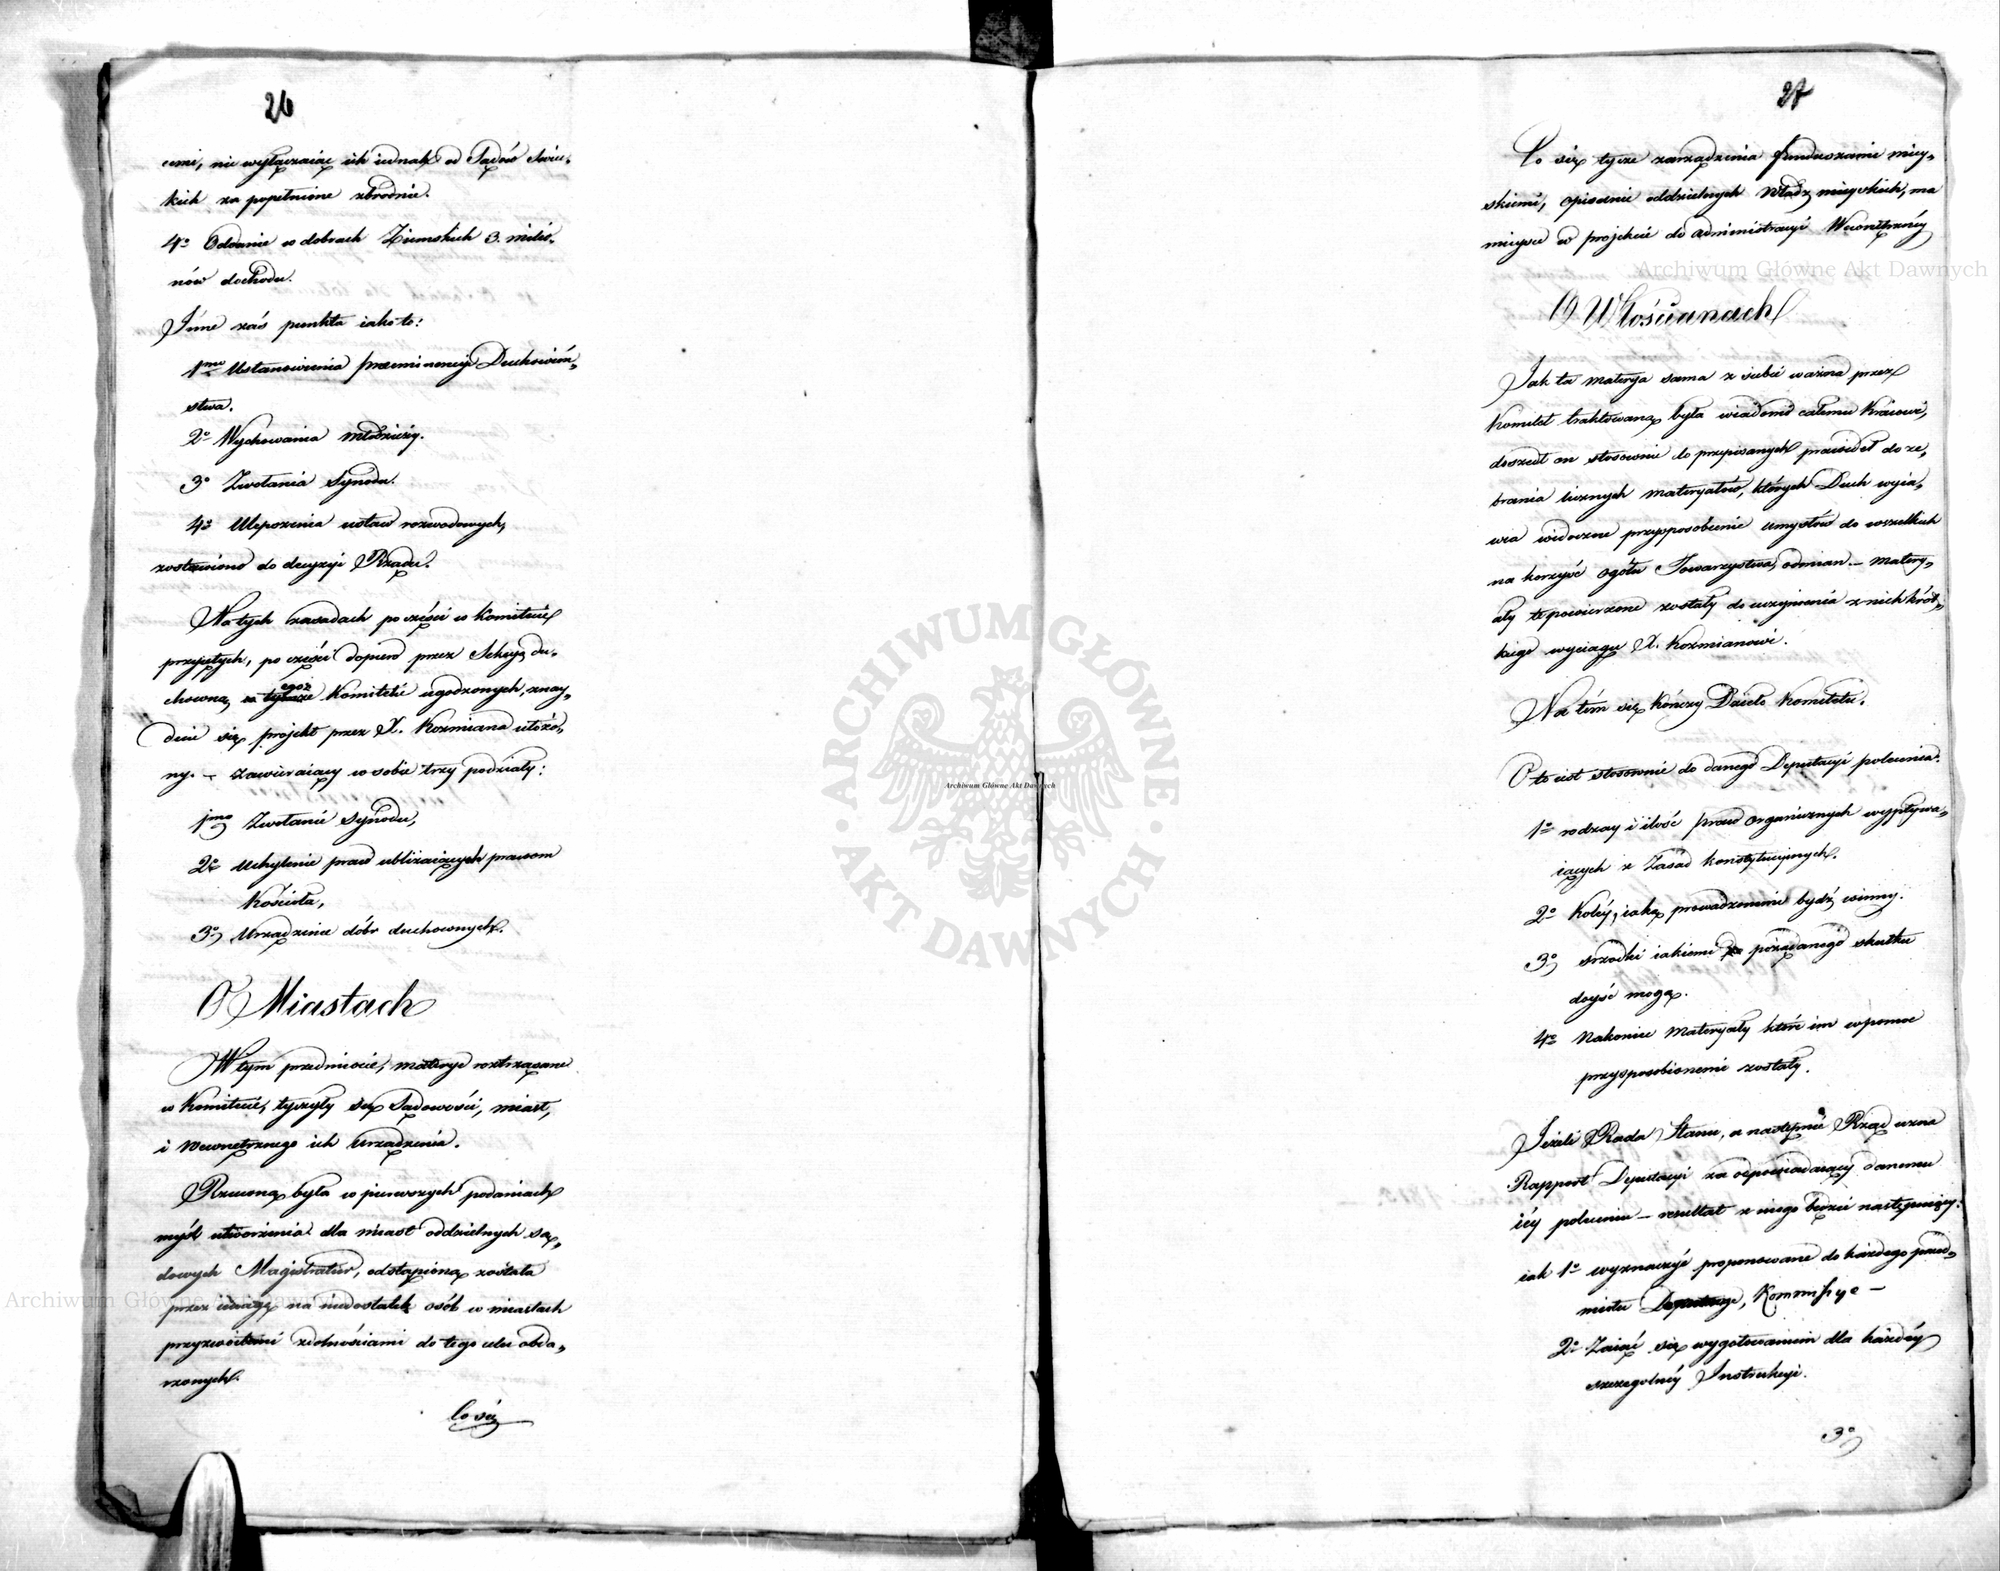 26
cemi, nie wyłączaiąc ich iednak od Sądów świec,
kich za popełnione zbrodnie.
4o Oddanie w dobrach Ziemskich 3. milio,
nów dochodu.
Inne zaś punkta iako to:
1mo Ustanowienia preeminencyi Duchowień,
stwa.
2o Wychowania młodzieży.
3o Zwołania Synodu.
4o Ulepszenia ustaw rozwodowych,
zostawiono do decyzyi Rządu.
Na tych zasadach po części w Komitecie
przyjętych, po części dopiero przez Sekcyę du,
chowną egoż Komitetu ugodzonych, znay,
dzie się projekt przez X. Koźmiana ułożo,
ny. – zawieraiący w sobie trzy podziały:
1mo Zwołanie Synodu,
2o Uchylenie praw ubliżaiących prawom
Kościoła,
3o Urządzenie dóbr duchownych.
O Miastach
W tym przedmiocie, materye roztrząsane
w Komitecie, tyczyły się Sądowości, miast,
i wewnętrznego ich urządzenia.
Rzucona była w pierwszych podaniach
myśl utworzenia dla miast oddzielnych są,
dowych Magistratur, odstąpioną została
przez uwagę na niedostatek osób w miastach
przyzwoitemi zdolnościami do tego celu obda,
rzonych.
Co się
27
Co się tycze zarządzenia funduszami miey,
skiemi, opisanie oddzielnych Władz mieyskich, ma
mieysce w projekcie do administracyi Wewnętrzney
O Włościanach
Jak ta materya sama z siebie ważna przez
Komitet traktowaną była wiadomo całemu Kraiowi,
doszedł on stosownie do przepisanych prawideł do ze,
brania licznych materyałów, których Duch wyia,
wia widoczne przysposobienie umysłów do wszelkich
na korzyść ogółu Towarzystwa, odmian. – matery,
ały te powierzone zostały do uczynienia z nich krót,
kiego wyciągu X. Koźmianowi.
Na tém się kończy Dzieło Komitetu.
Oto iest stosownie do danego Deputacyi polecenia.
1o rodzay i ilość praw organicznych wypływa,
iących z Zasad konstytucyjnych.
2o Koléy, iaką prowadzonemi bydź winny.
3o srzodki iakiemi pożądanego skutku
doyść mogą.
4o Nakoniec Materyały które im w pomoc
przysposobionemi zostały.
Jeżeli Rada Stanu, a następnie Rząd uzna
Rapport Deputacyi za odpowiadaiący danemu
iéy poleceniu – rezultat z niego będzie następuiący:
iak 1o wyznaczyć proponowane do każdego przed,
miotu Deputacye, Kommissye –
2o Zaiąć się wygotowaniem dla każdéy
szczególnéy Instrukcyi.
3o
Archiwum Główne Akt Dawnych
Archiwum Główne Akt Dawnych
Archiwum Główne Akt Dawnych
ARCHIWUM GŁÓWNE
· AKT DAWNYCH ·